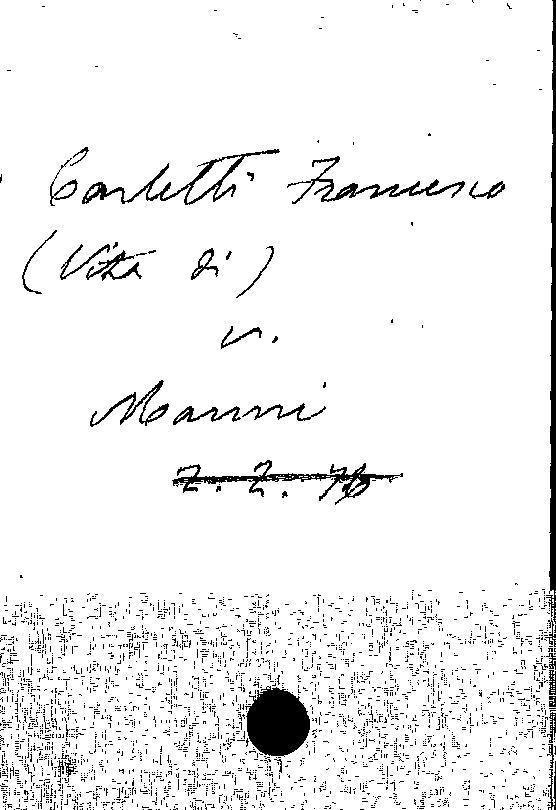 Carletti Francesco
(Vita di)
v.
Manni
Z. 2. 76